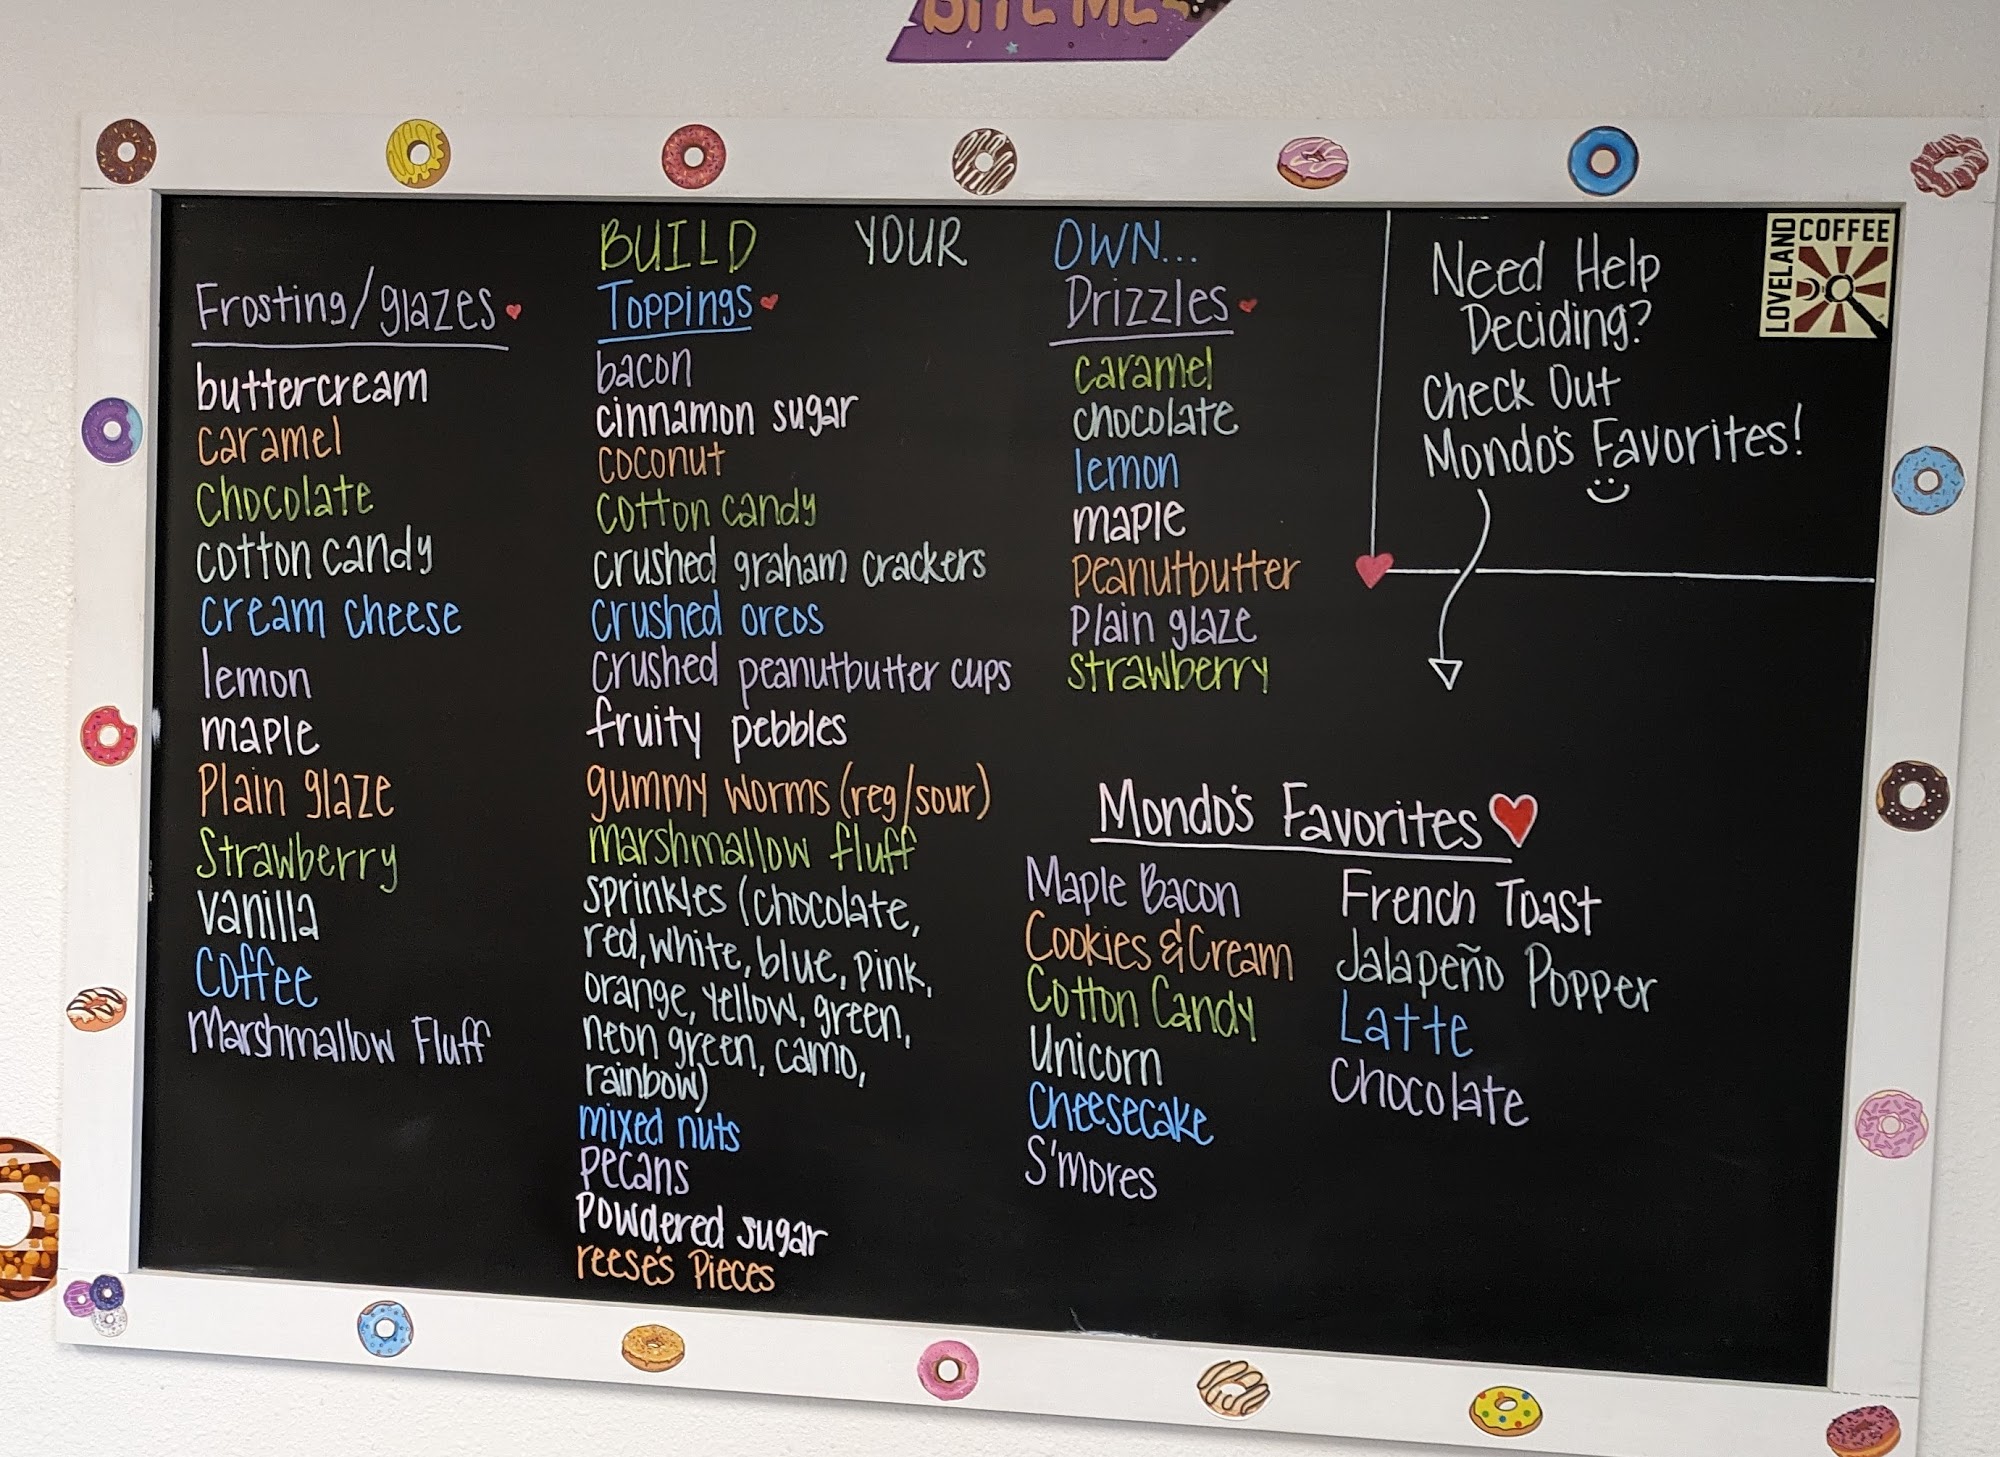 BITE ME
BUILD YOUR OWN...
Frosting/glazes
buttercream
caramel
chocolate
cotton candy
cream cheese
lemon
maple
Plain glaze
Strawberry
vanilla
Coffee
Marshmallow Fluff
Toppings
bacon
cinnamon sugar
coconut
cotton candy
crushed graham crackers
crushed oreos
crushed peanutbutter cups
fruity pebbles
gummy worms (reg/sour)
marshmallow fluff
sprinkles (chocolate,
red, white, blue, pink,
orange, yellow, green,
neon green, camo,
rainbow)
mixed nuts
pecans
Powdered sugar
reese's Pieces
Drizzles
caramel
chocolate
lemon
maple
Peanutbutter
Plain glaze
strawberry
Need Help
Deciding?
Check Out
Mondo's Favorites!
LOVELAND
COFFEE
Mondo's Favorites
Maple Bacon
Cookies & Cream
Cotton Candy
Unicorn
Cheesecake
S'mores
French Toast
Jalapeño Popper
Latte
Chocolate